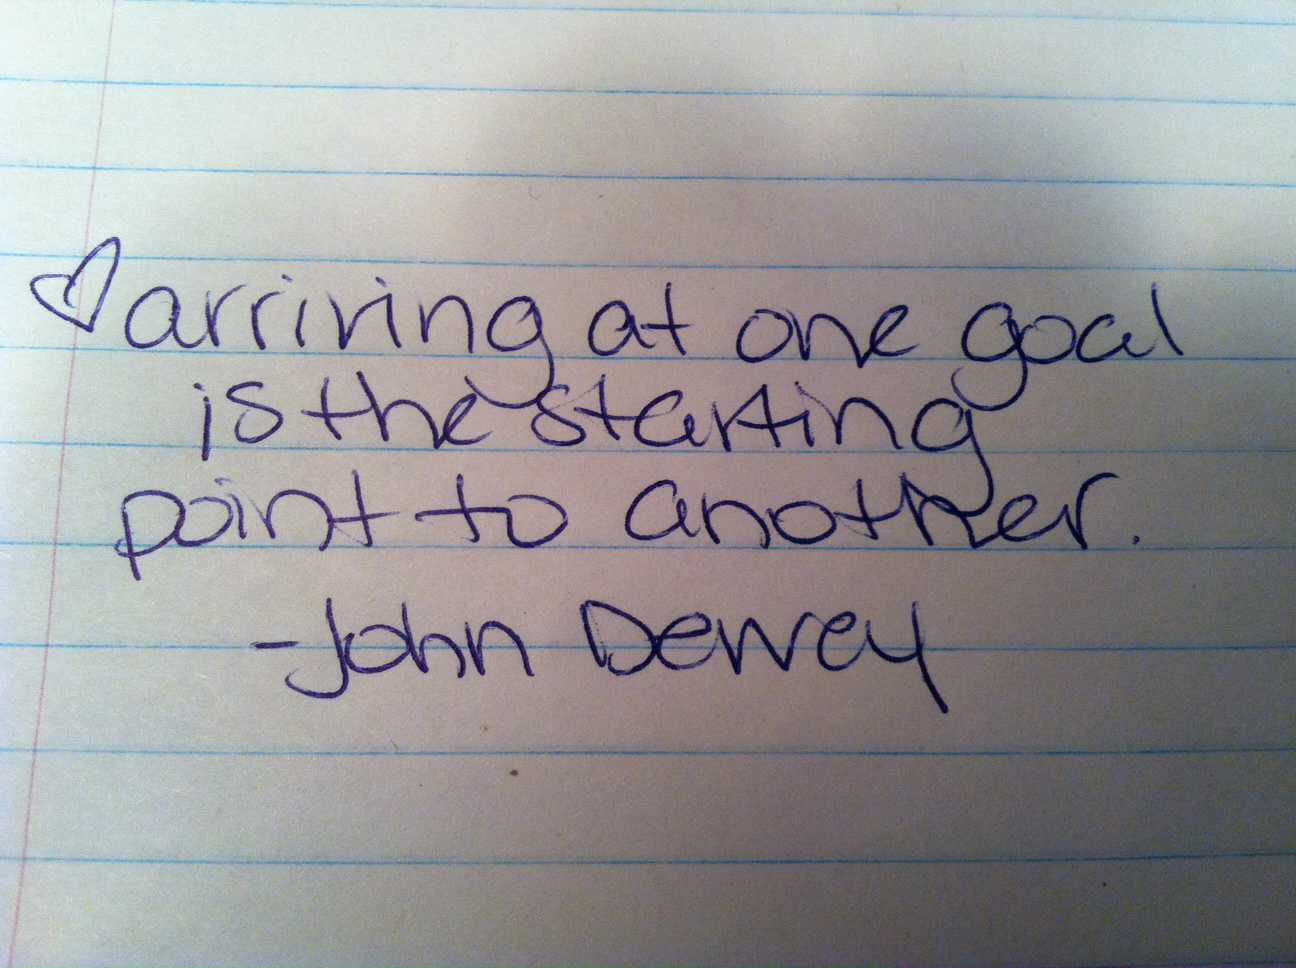 arriving at one goal
is the starting
point to another.
-John Dewey